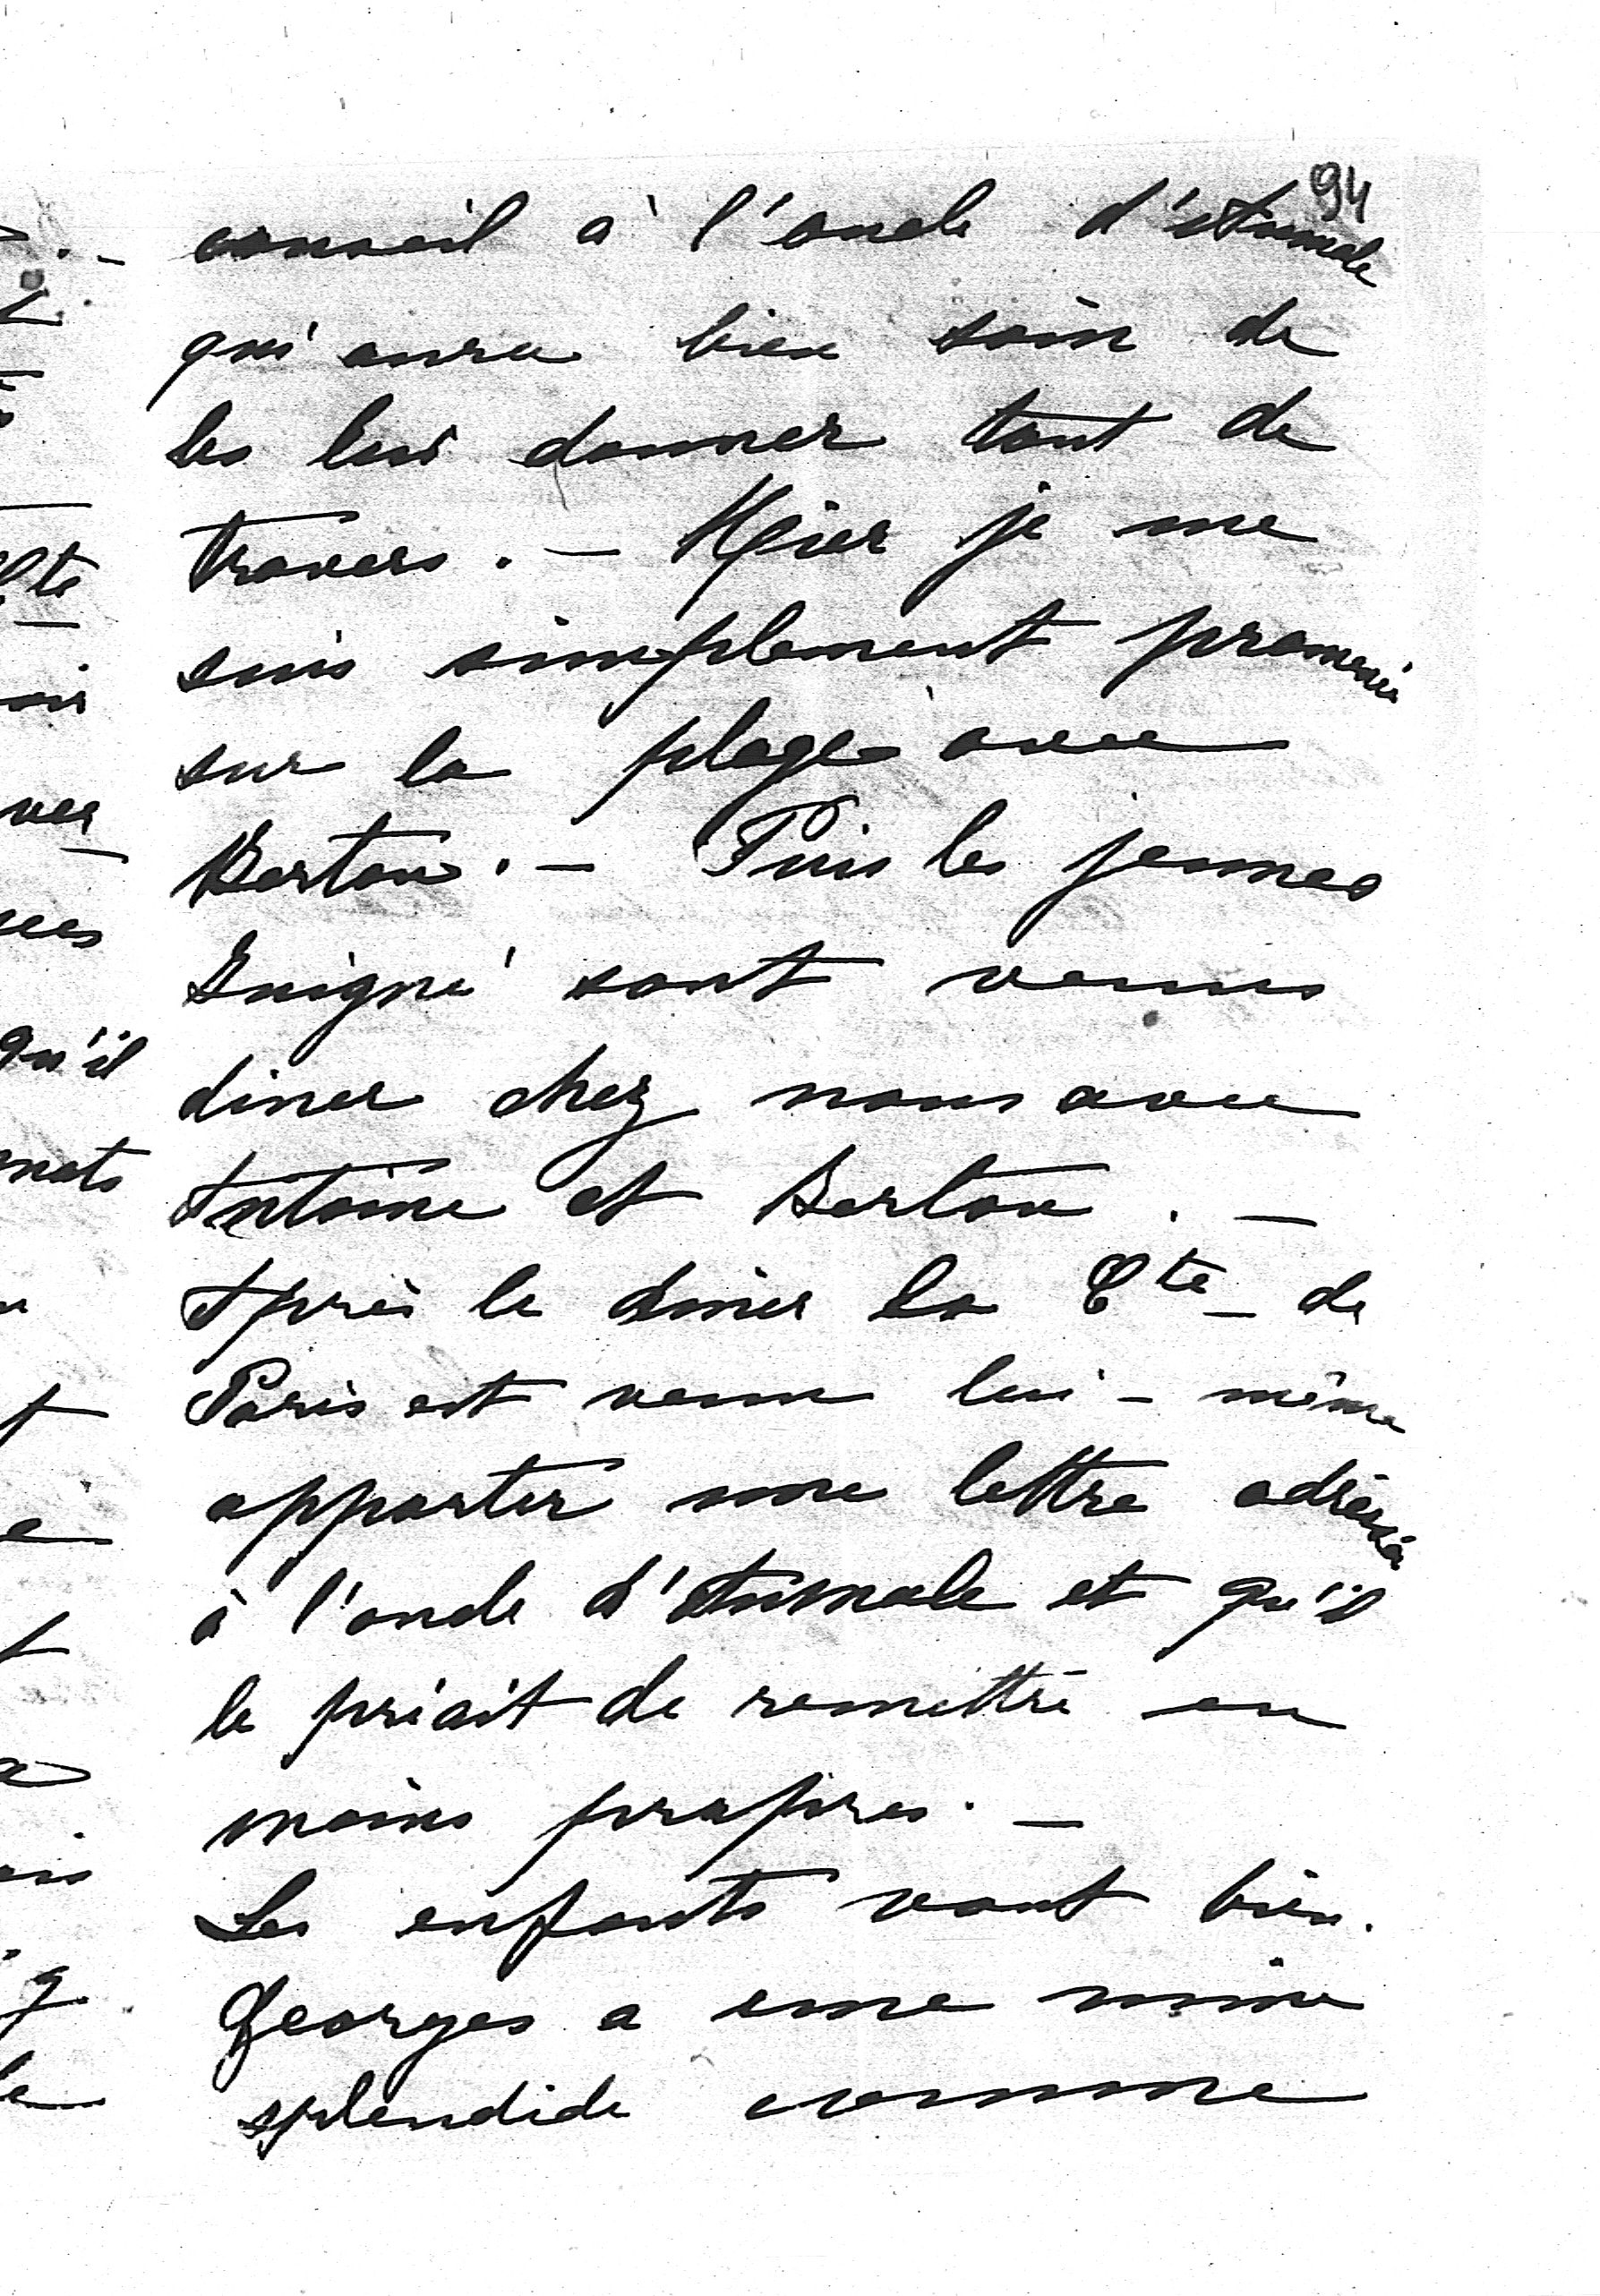 94
conseil à l'oncle d'Aumale
qui aura bien soin de
les lui donner tout de
travers. — Hier je me
suis simplement promené
sur la plage avec
Berton. — Puis les jeunes
Guigné sont venus
diner chez nous avec
Antoine et Berton. —
Après le diner la Cte de
Paris est venu lui-même
apporter une lettre adressée
à l'oncle d'Aumale et qu'il
le priait de remettre en
mains propres. —
Les enfants vont bien.
Georges a une mine
splendide comme